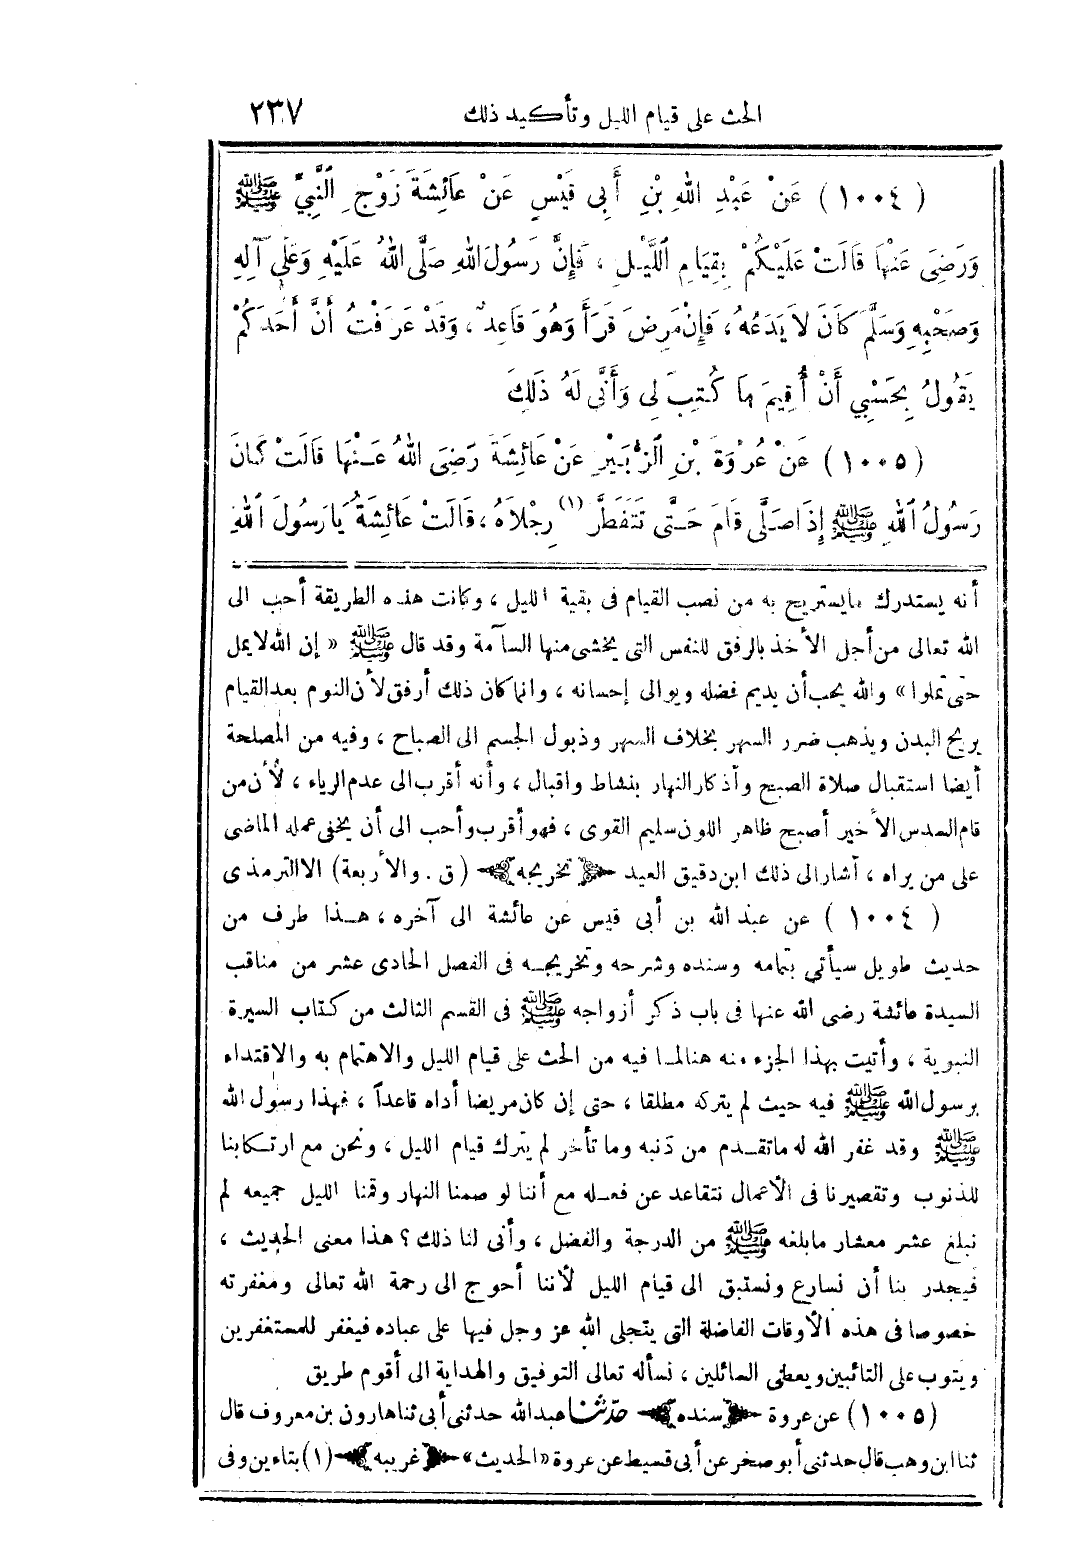 الحث على قيام الليل وتأكيد ذلك ٢٣٧
(١٠٠٤) عَنْ عَبْدِ اللهِ بْنِ أَبِى قَيْسٍ عَنْ عَائِشَةَ زَوْجِ النَّبِيِّ ﷺ
وَرَضِىَ عَنْهَا قَالَتْ عَلَيْكُمْ بِقِيَامِ اللَّيْلِ ، فَإِنَّ رَسُولَ اللهِ صَلَّى اللهُ عَلَيْهِ وَعَلَى آلِهِ
وَصَحْبِهِ وَسَلَّمَ كَانَ لَا يَدَعُهُ ، فَإِنْ مَرِضَ قَرَأَ وَهُوَ قَاعِدٌ ، وَقَدْ عَرَفْتُ أَنَّ أَحَدَكُمْ
يَقُولُ بِحَسْبِي أَنْ أُقِيمَ مَا كُتِبَ لِى وَأَنَّى لَهُ ذَلِكَ
(١٠٠٥) عَنْ عُرْوَةَ بْنِ الزُّبَيْرِ عَنْ عَائِشَةَ رَضِىَ اللهُ عَنْهَا قَالَتْ كَانَ
رَسُولُ اللهِ ﷺ إِذَا صَلَّى قَامَ حَتَّى تَتَفَطَّرَ (١) رِجْلَاهُ ، قَالَتْ عَائِشَةُ يَا رَسُولَ اللهِ
أنه يستدرك مايستريح به من نصب القيام فى بقية الليل ، وكانت هذه الطريقة أحب الى
الله تعالى من أجل الأخذ بالرفق للنفس التى يخشى منها السآمة وقد قال ﷺ « إن الله لا يمل
حتى تملوا » والله يحب أن يديم فضله ويوالى إحسانه ، وانما كان ذلك أرفق لأن النوم بعد القيام
يريح البدن ويذهب ضرر السهر بخلاف السهر وذبول الجسم الى الصباح ، وفيه من المصلحة
أيضا استقبال صلاة الصبح وأذكار النهار بنشاط واقبال ، وأنه أقرب الى عدم الرياء ، لأن من
قام السدس الأخير أصبح ظاهر اللون سليم القوى ، فهو أقرب وأحب الى أن يخفى عمله الماضى
على من يراه ، أشار الى ذلك ابن دقيق العيد ﴿ تخريجه ﴾ (ق . والأربعة) الا الترمذى
(١٠٠٤) عن عبد الله بن أبى قيس عن عائشة الى آخره ، هذا طرف من
حديث طويل سيأتى بتمامه وسنده وشرحه وتخريجه فى الفصل الحادى عشر من مناقب
السيدة عائشة رضى الله عنها فى باب ذكر أزواجه ﷺ فى القسم الثالث من كتاب السيرة
النبوية ، وأتيت بهذا الجزء منه هنا لما فيه من الحث على قيام الليل والاهتمام به والاقتداء
برسول الله ﷺ فيه حيث لم يتركه مطلقا ، حتى إن كان مريضا أداه قاعداً ، فهذا رسول الله
ﷺ وقد غفر الله له ما تقدم من ذنبه وما تأخر لم يترك قيام الليل ، ونحن مع ارتكابنا
للذنوب وتقصيرنا فى الأعمال نتقاعد عن فعله مع أننا لو صمنا النهار وقمنا الليل جميعه لم
نبلغ عشر معشار مابلغه ﷺ من الدرجة والفضل ، وأنى لنا ذلك ؟ هذا معنى الحديث ،
فيجدر بنا أن نسارع ونستبق الى قيام الليل لأننا أحوج الى رحمة الله تعالى ومغفرته
خصوصا فى هذه الأوقات الفاضلة التى يتجلى الله عز وجل فيها على عباده فيغفر للمستغفرين
ويتوب على التائبين ويعطى السائلين ، نسأله تعالى التوفيق والهداية الى أقوم طريق
(١٠٠٥) عن عروة ﴿ سنده ﴾ حدثنا عبد الله حدثنى أبى ثنا هارون بن معروف قال
ثنا ابن وهب قال حدثنى أبو صخر عن أبى قسيط عن عروة «الحديث» ﴿ غريبه ﴾ (١) بتاءين وفى